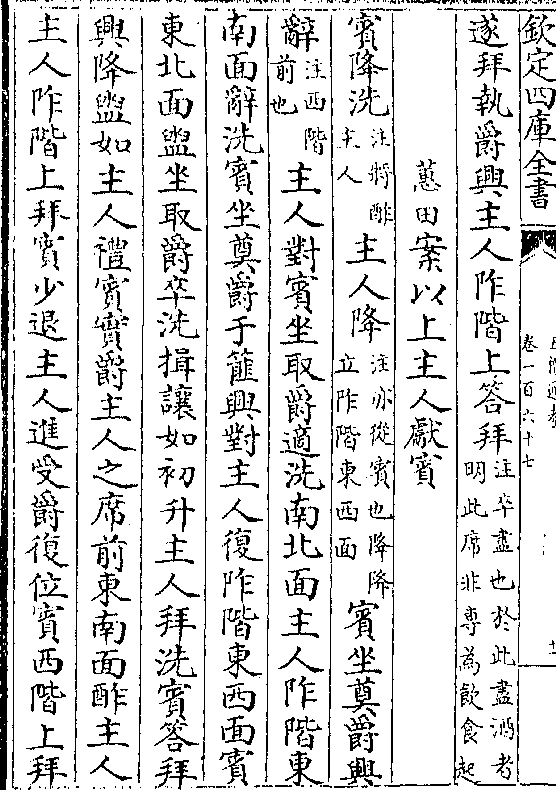 欽定四庫全書
卷一百六十七
遂拜執爵興主人阼階上答拜注卒盡也於此盡酒者明此席非専為飲食起
蕙田案以上主人獻賓
賓降洗注將酢主人主人降注亦從賓也降降立阼階東西面賓坐奠爵興
辭注西階前也主人對賓坐取爵適洗南北面主人阼階東
南面辭洗賓坐奠爵于篚興對主人復阼階東西面賓
東北面盥坐取爵卒洗揖讓如初升主人拜洗賓答拜
興降盥如主人禮賓實爵主人之席前東南面酢主人
主人阼階上拜賓少退主人進受爵復位賓西階上拜